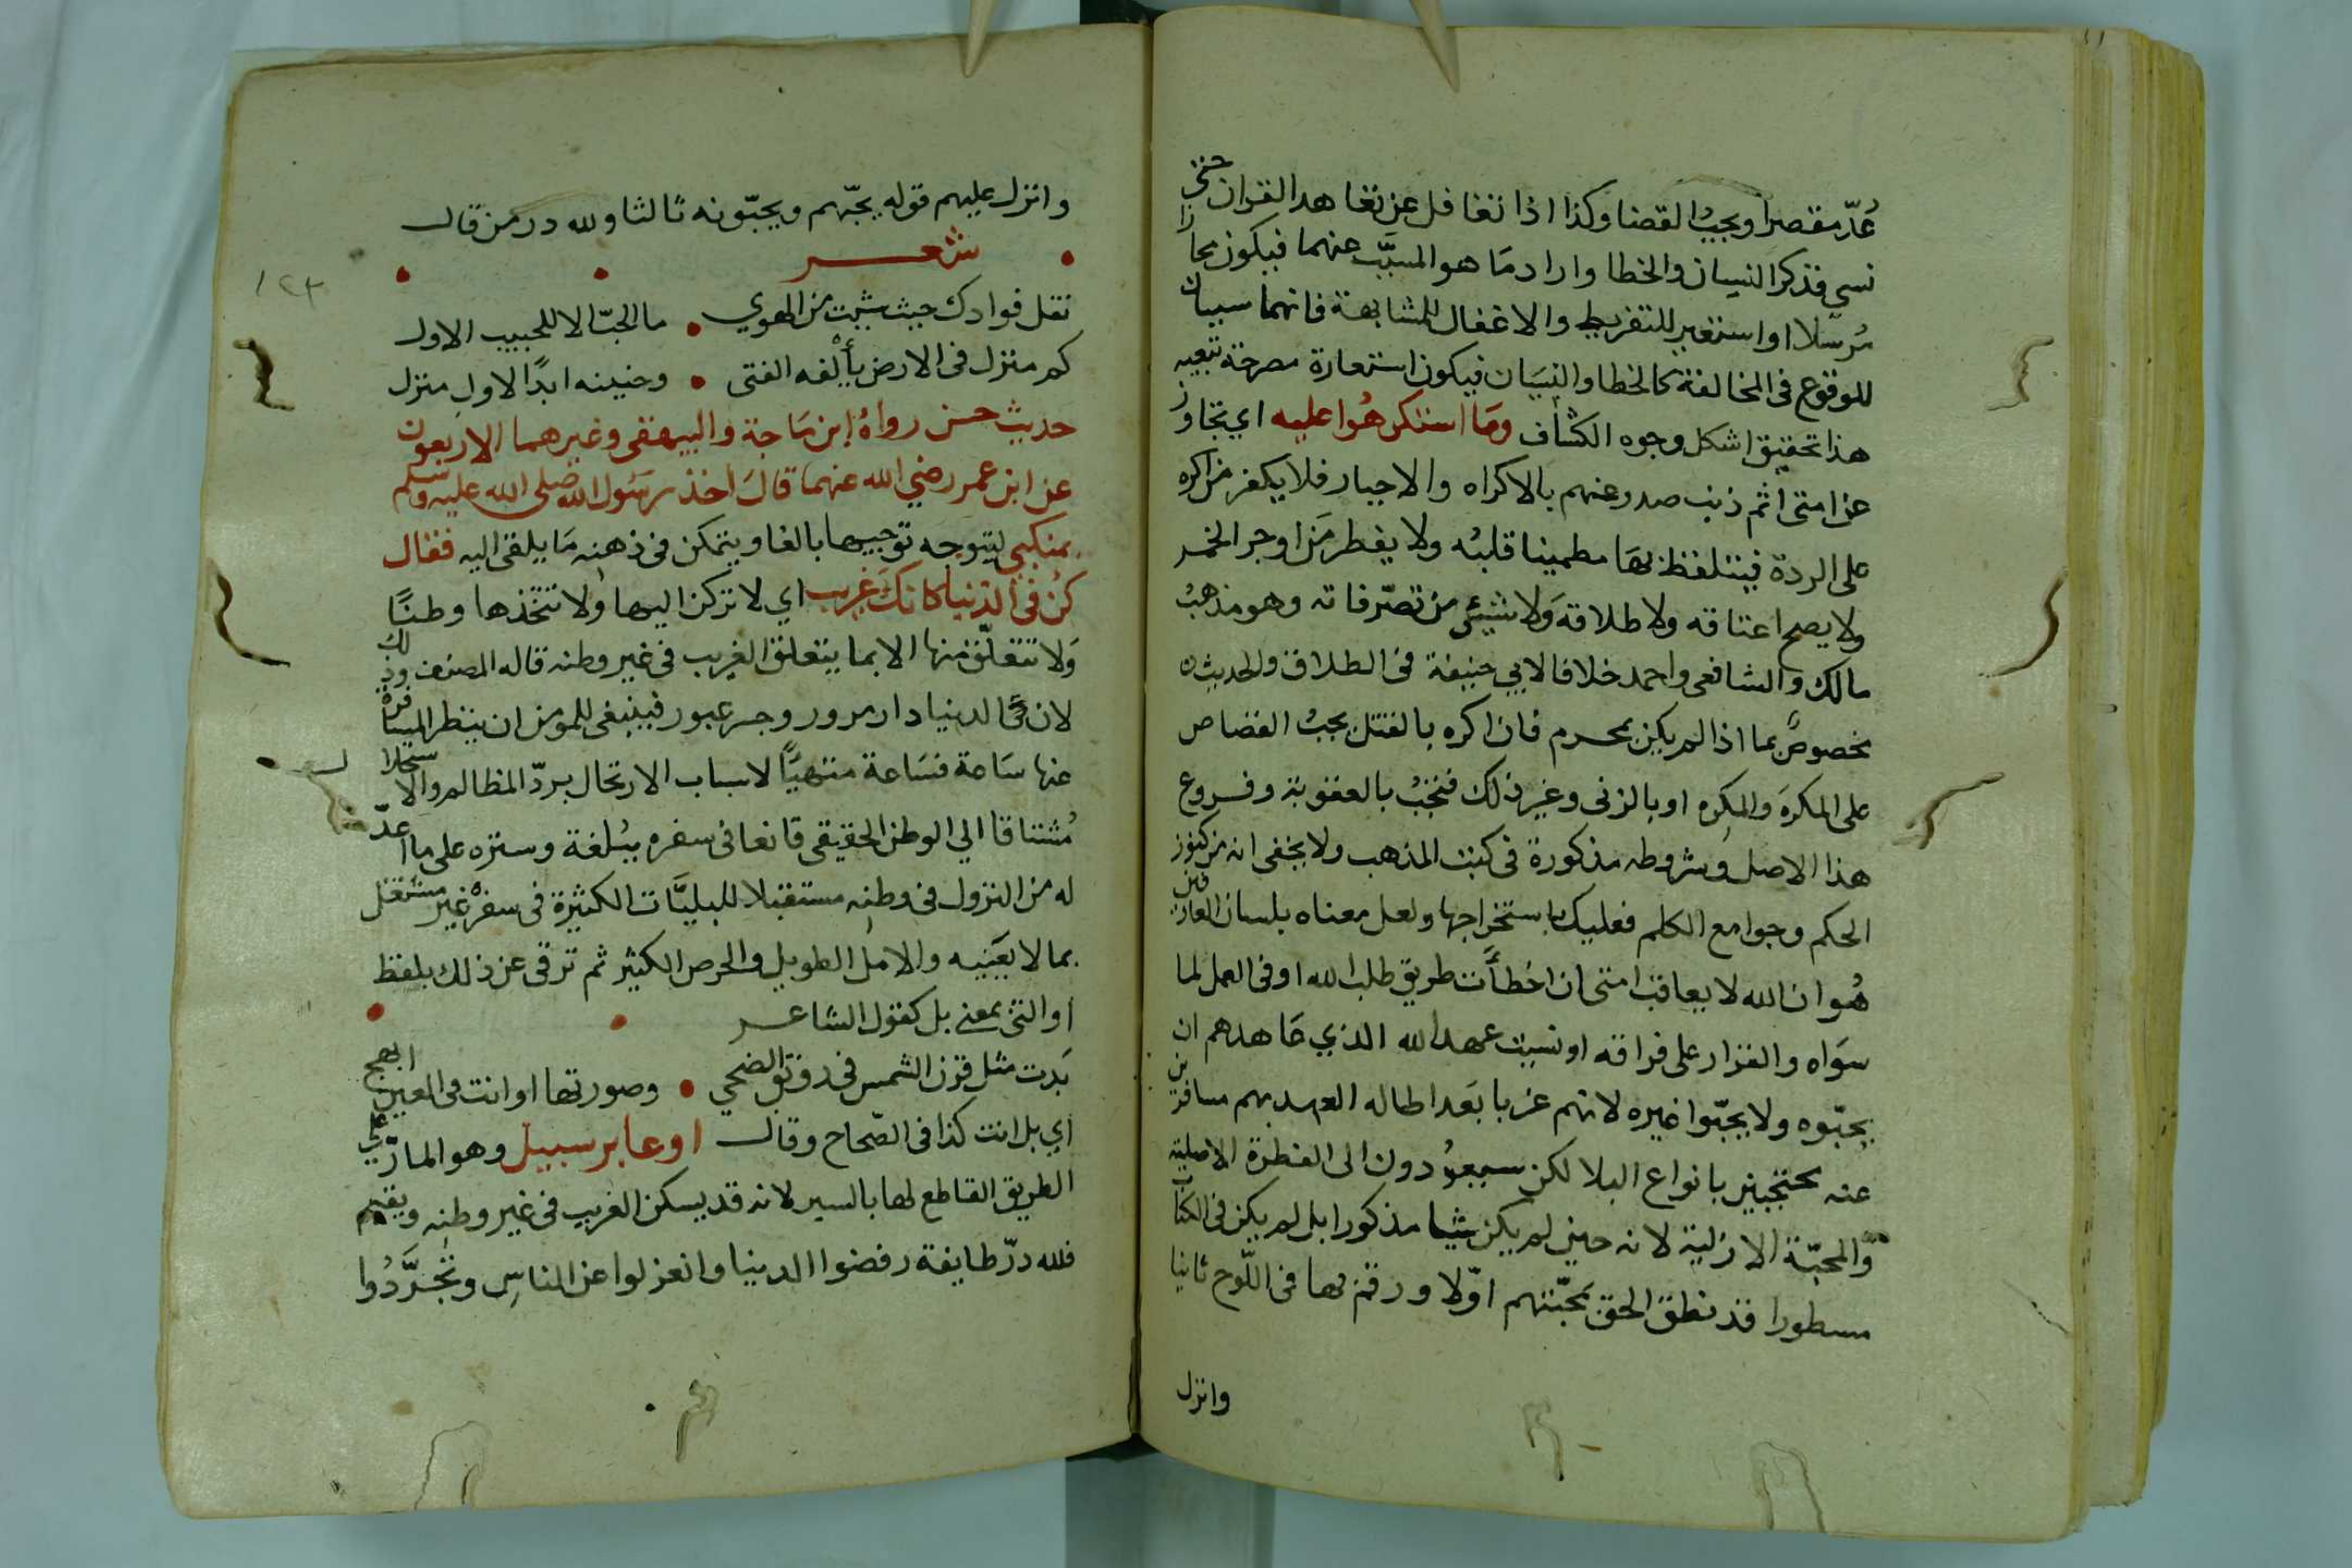 عُدّ مقصرا ويجبُ القضا وكذا اذا تغافل عن تعاهد القران حتى
نسي فذكر النسيان والخطا واراد مَا هو المسبَّب عنهما فيكون مجازا
مُرسلا او استعير للتفريط والاغفال للمشابهة فانهما سببان
للوقوع فى المخالفة كالخطا والنسيَان فيكون استعارة مصرحة تبعيه
هذا تحقيق اشكل وجوه الكشاف ومَا استكرهُوا عليه اي تجاوز
عن امتى اثم ذنب صدر عنهم بالاكراه والاجبار فلا يكفر من اكره
على الردة فيتلفظ بهَا مطمينا قلبُه ولا يفطر مَن اوجر الخمر
ولا يصح اعتاقه ولا طلاقه وَلا شيئ من تصّرفاته وهو مذهبُ
مالك والشافعى واحمد خلافا لابي حنيفة فى الطلاق والحديث
مخصوصٌ بما اذا لم يكن بمحرم فان اكره بالقتل يجبُ القصاص
على المكرَه والمكرِه او بالزنى وغير ذلك فتجبُ بالعقوبة وفروع
هذا الاصل وشروطه مذكورة فى كتب المذهب ولا يخفى انه من كنوز
الحكم وجوامع الكلم فعليك باستخراجها ولعل معناه بلسان العارفين
هُو ان الله لا يعاقب امتى ان اخطأت طريق طلب الله او فى العمل لما
سوَاه والقرار على فراقه او نسيت عهد الله الذي عَاهدهم ان
يحبّوه ولا يحبّوا غيره لانهم غربا بَعد اطاله العهد بهم مسافرين
عنه محتجبين بانواع البلا لكن سيعوُدون الى الفطرة الاصلية
والمحبّة الازلية لانه حين لم يكن شيا مذكورا بل لم يكن فى الكتاب
مسطورا قد نطق الحق بمحبّتهم اوّلا ورقم بها فى اللّوح ثانيا
وانزل
وانزل عليهم قوله يحبّهم ويحبّونه ثالثا ولله در من قال
شعر
١٢٣
نقل فوادك حيث شيت من الهوي • ما الحبّ الا للحبيب الاول
كم منزل فى الارض يأْلفه الفتى • وحنينه ابدًا لاول منزل
حديث حسن رواهُ ابن مَاجة والبيهقى وغيرهما الاربعون
عن ابن عمر رضي الله عنهما قالَ اخذ رسَول الله صلى الله عليه وسلم
بمنكبي ليتوجه توجيها بالغا ويتمكن فى ذهنه مَا يلقى اليه فقال
كن فى الدنيا كانكَ غريب اي لا تركن اليها ولا تتخذها وطنًا
وَلا تتعلّق منها الا بما يتعلق الغريب فى غير وطنه قاله المصنف وذلك
لان الدنيا دار مرور وجسر عبور فينبغى للمومن ان ينتظر المسافرة
عنها سَاعة فسَاعة متهيًّا لاسباب الارتحال بردّ المظالم والاستحلال
مُشتاقا الي الوطن الحقيقى قانعا فى سفره ببُلغة وستره على ما اعدّ
له من النزول فى وطنه مستقبلا للبليَّات الكثيرة فى سفره غير مشتغل
بما لا يعَنيه والامل الطويل والحرص الكثير ثم ترقى عن ذلك بلفظ
او التى بمعنى بل كقول الشاعر
بَدت مثل قرن الشمس فى رونق الضحي • وصورتها او انت فى العين ابهج
اي بل انت كذا فى الصّحاح وقال او عابر سبيل وهو المارّ على
الطريق القاطع لها بالسير لانه قد يسكن الغريب فى غير وطنه ويقيم
فلله درّ طايفة رفضوا الدنيا وانعزلوا عن الناس وتجَرَّدُوا